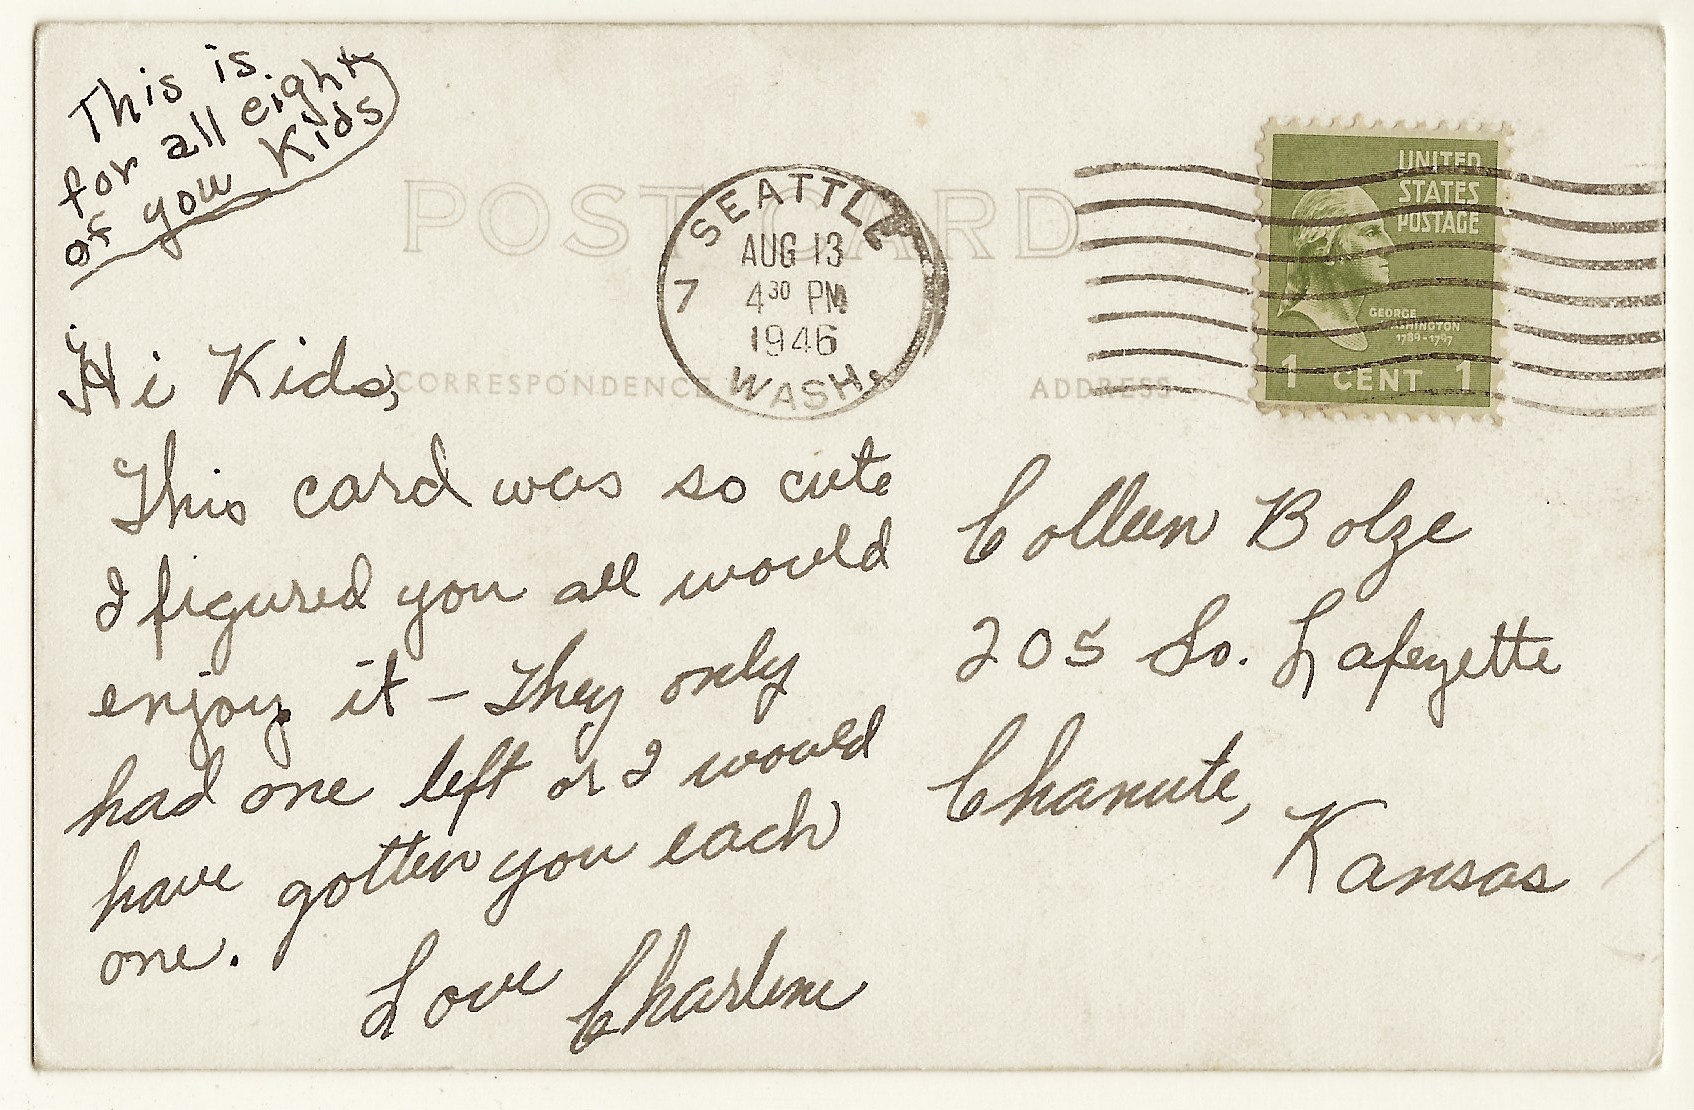 This is
for all eight
of you Kids
POST CARD
SEATTLE
AUG 13
7 4³⁰ PM
1946
WASH.
UNITED
STATES
POSTAGE
GEORGE
WASHINGTON
1789-1797
1 CENT 1
CORRESPONDENCE
ADDRESS
Hi Kids,
This card was so cute
I figured you all would
enjoy it – They only
had one left or I would
have gotten you each
one.
Love Charlene
Colleen Bolze
205 So. Lafeyette
Chanute,
Kansas